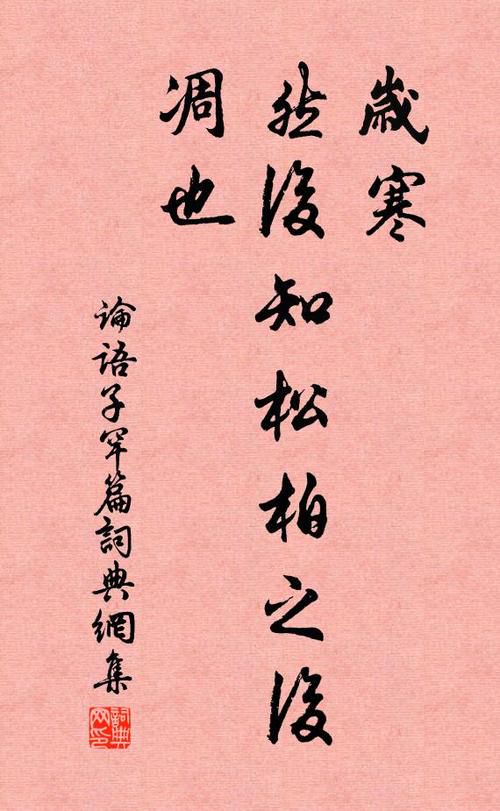 歲寒
然後知松柏之後
凋也
論語子罕篇詞典網集
詞典網印